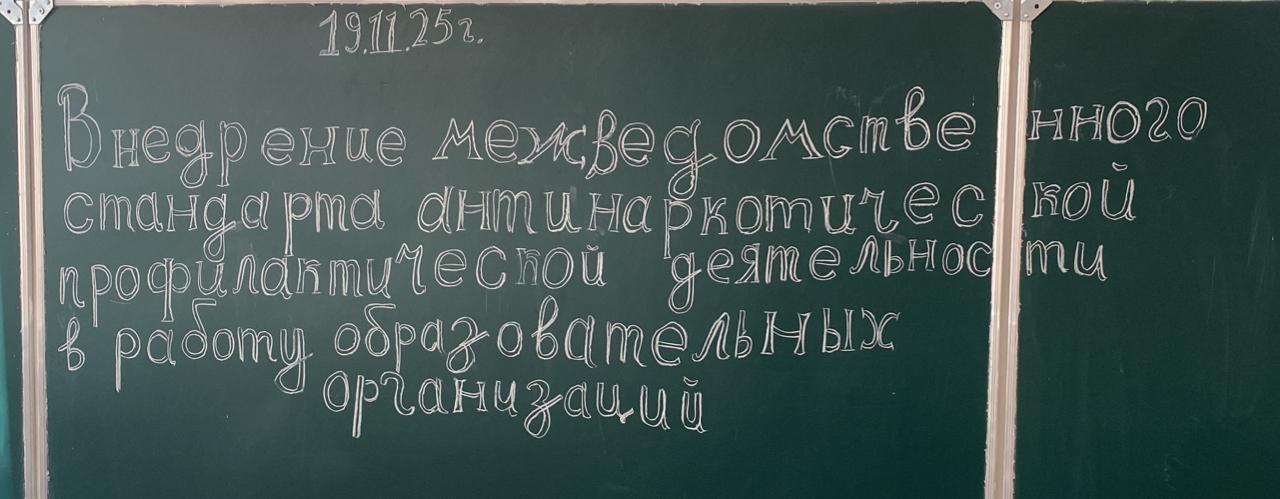 19.11.25г.
Внедрение межведомственного
стандарта антинаркотической
профилактической деятельности
в работу образовательных
организаций